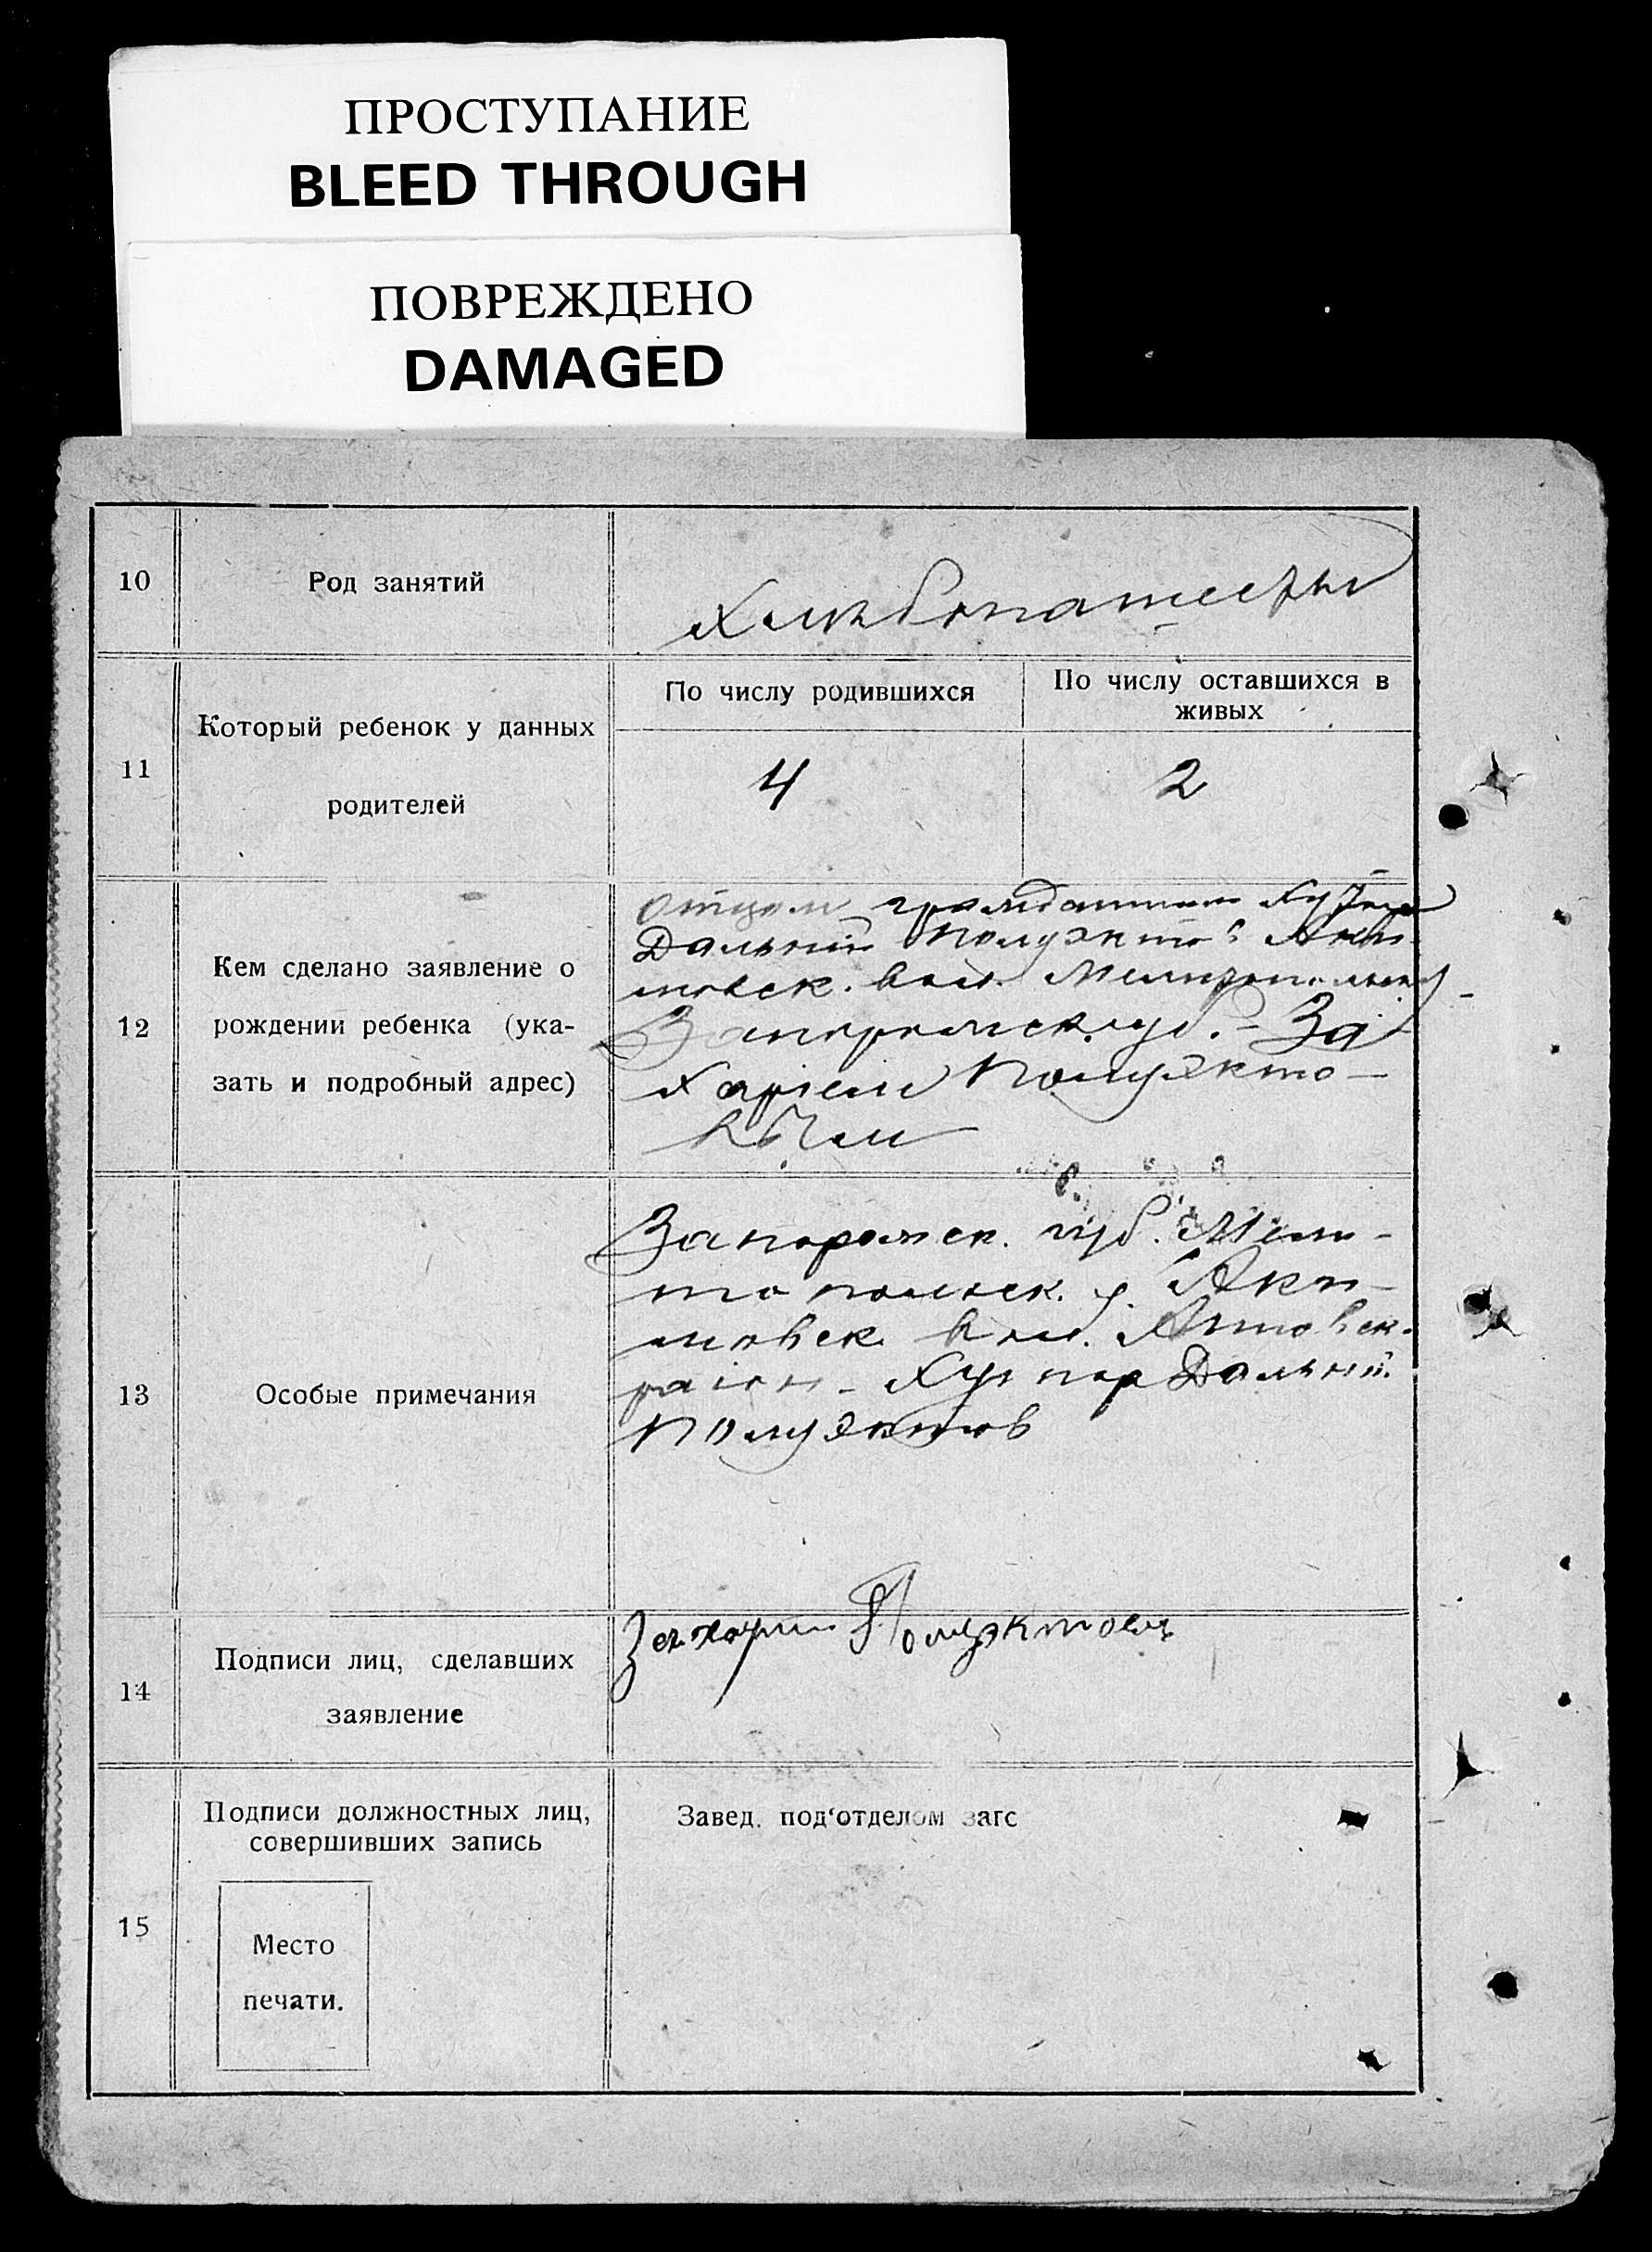 ПРОСТУПАНИЕ
BLEED THROUGH
ПОВРЕЖДЕНО
DAMAGED
10
Род занятий
11
Который ребенок у данных
родителей
По числу родившихся
По числу оставшихся в
живых
4
2
12
Кем сделано заявление о
рождении ребенка (ука-
зать и подробный адрес)
Отцом гражданином Хутора
Дальний Полуэктов Аки-
мовск. вол.
Запорожск. губ. - За-
харием Полуэкто-
13
Особые примечания
Запорожск. губ. Мели-
топольск. у. Аки-
мовск. вол.
район - Хутор Дальний
Полуэктов
14
Подписи лиц, сделавших
заявление
Захарий Полуэктовъ
15
Подписи должностных лиц,
совершивших запись
Завед. под'отделом загс
Место
печати.